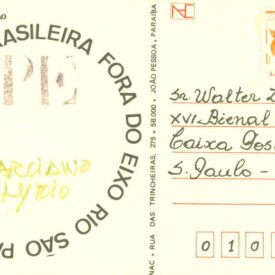 BRASILEIRA FORA DO EIXO RIO SÃO PA
PE
MARCIANO
LYRIO
NAC - RUA DAS TRINCHEIRAS, 275 - 58.000 - JOÃO PESSOA, PARAÍBA
Sr. Walter Z
XVI Bienal
Caixa Pos
S. Paulo -
0 1 0